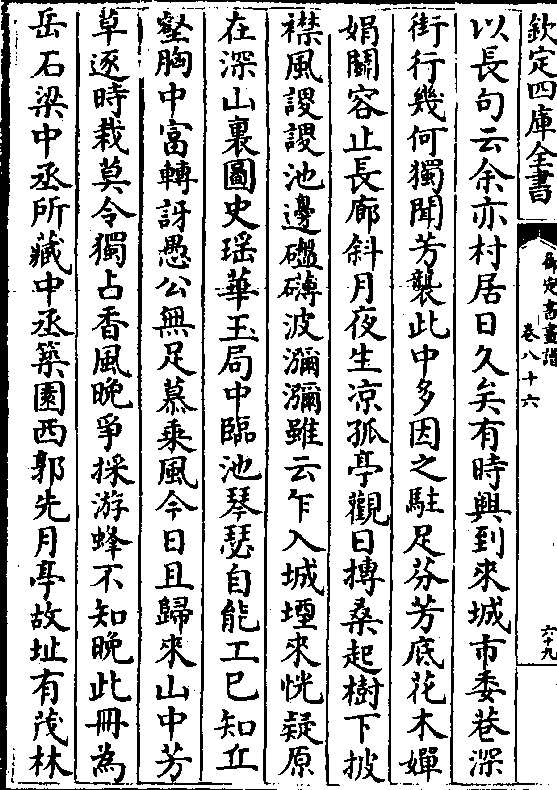 欽定四庫全書
御定書畫譜
卷八十六
六十九
以長句云余亦村居日久矣有時興到來城市委巷深
街行幾何獨聞芳襲此中多因之駐足芬芳底花木嬋
娟闢容止長廊斜月夜生凉孤亭觀日摶桑起樹下披
襟風謖謖池邊礚礡波瀰瀰雖云乍入城堙來恍疑原
在深山裏圖史瑶華玉局中臨池琴瑟自能工已知丘
壑胸中富轉訝愚公無足慕乘風今日且歸來山中芳
草逐時栽莫令獨占香風晚爭採游蜂不知晚此冊為
岳石梁中丞所藏中丞築園西郭先月亭故址有茂林